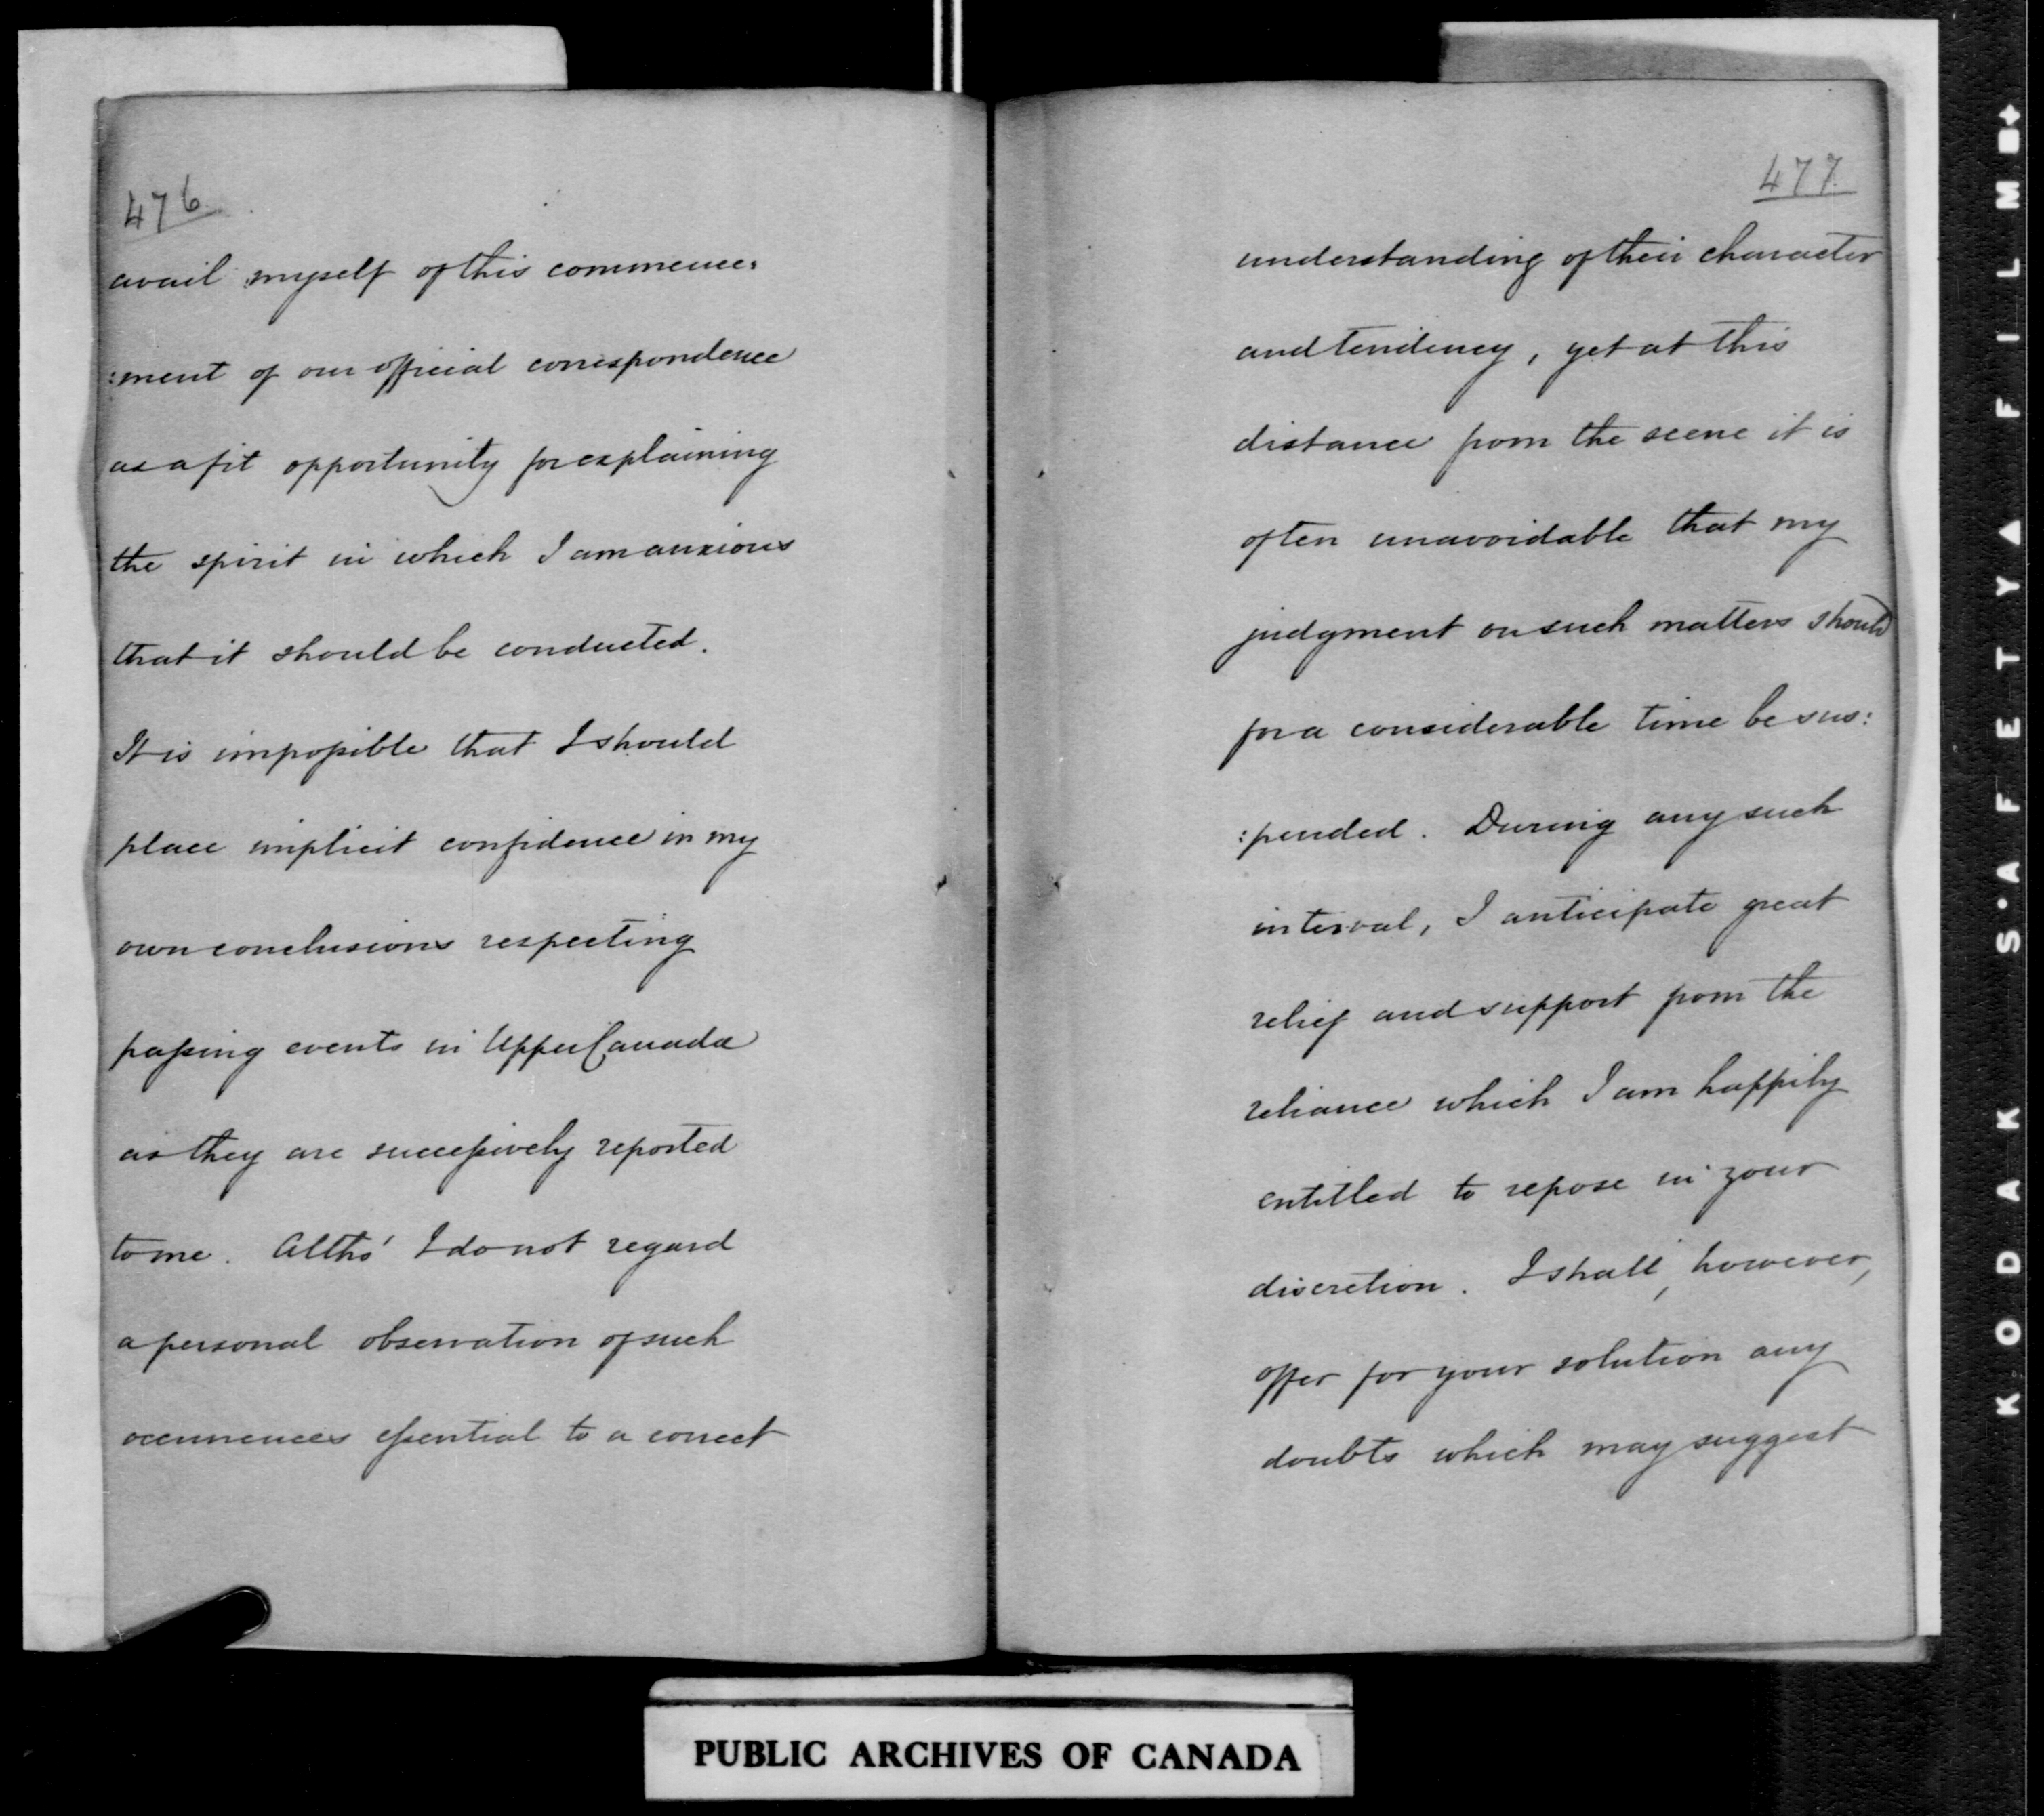 476
avail myself of this commence:
:ment of our official correspondence
as a fit opportunity for explaining
the spirit in which I am anxious
that it should be conducted.
It is impossible that I should
place implicit confidence in my
own conclusions respecting
passing events in Upper Canada
as they are successively reported
to me. Altho' I do not regard
a personal observation of such
occurrences essential to a correct
477
understanding of their character
and tendency, yet at this
distance from the scene it is
often unavoidable that my
judgment on such matters should
for a considerable time be sus:
:pended. During any such
interval, I anticipate great
relief and support from the
reliance which I am happily
entitled to repose in your
discretion. I shall, however,
offer for your solution any
doubts which may suggest
PUBLIC ARCHIVES OF CANADA
KODAK S·AFETY▲FILM■+